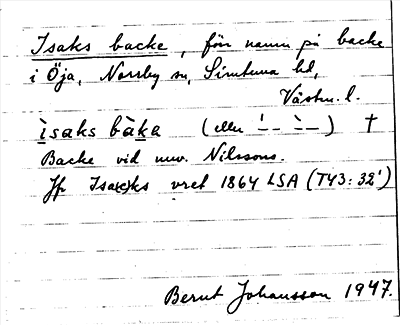 Isaks backe, förr namn på backe
i Öja, Norrby sn, Simtuna hd,
Västm. l.
ìsaks bàka (eller ˈ– – ˋ– –) †
Backe vid nuv. Nilssons.
Jfr Isa(c)ks vret 1864 LSA (T43:32¹)
Bernt Johansson 1947.